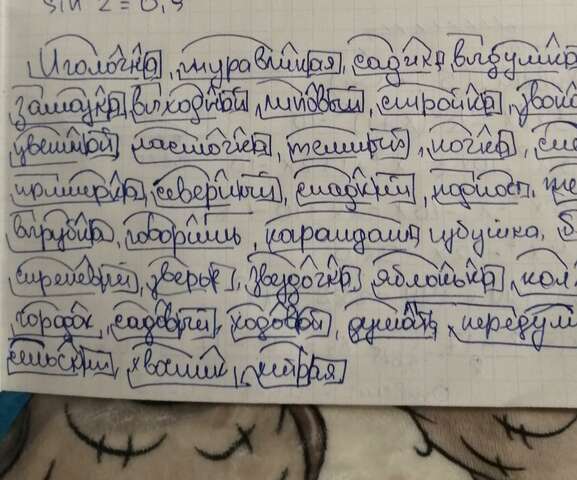 sin 2 = 0,9
Иголочка, муравьиная, садик, выдумка
замазка, выходной, липовый, стройка, звонк
цветной, ласточка, темный, ночка, сне
примерка, северный, сладкий, поднос,
вырубка, говоришь, карандаш, избушка,
сиреневый, зверье, звездочка, яблонька, кол
городок, садовый, ходовой, думать, передум
сельский, хвостик, хитрая